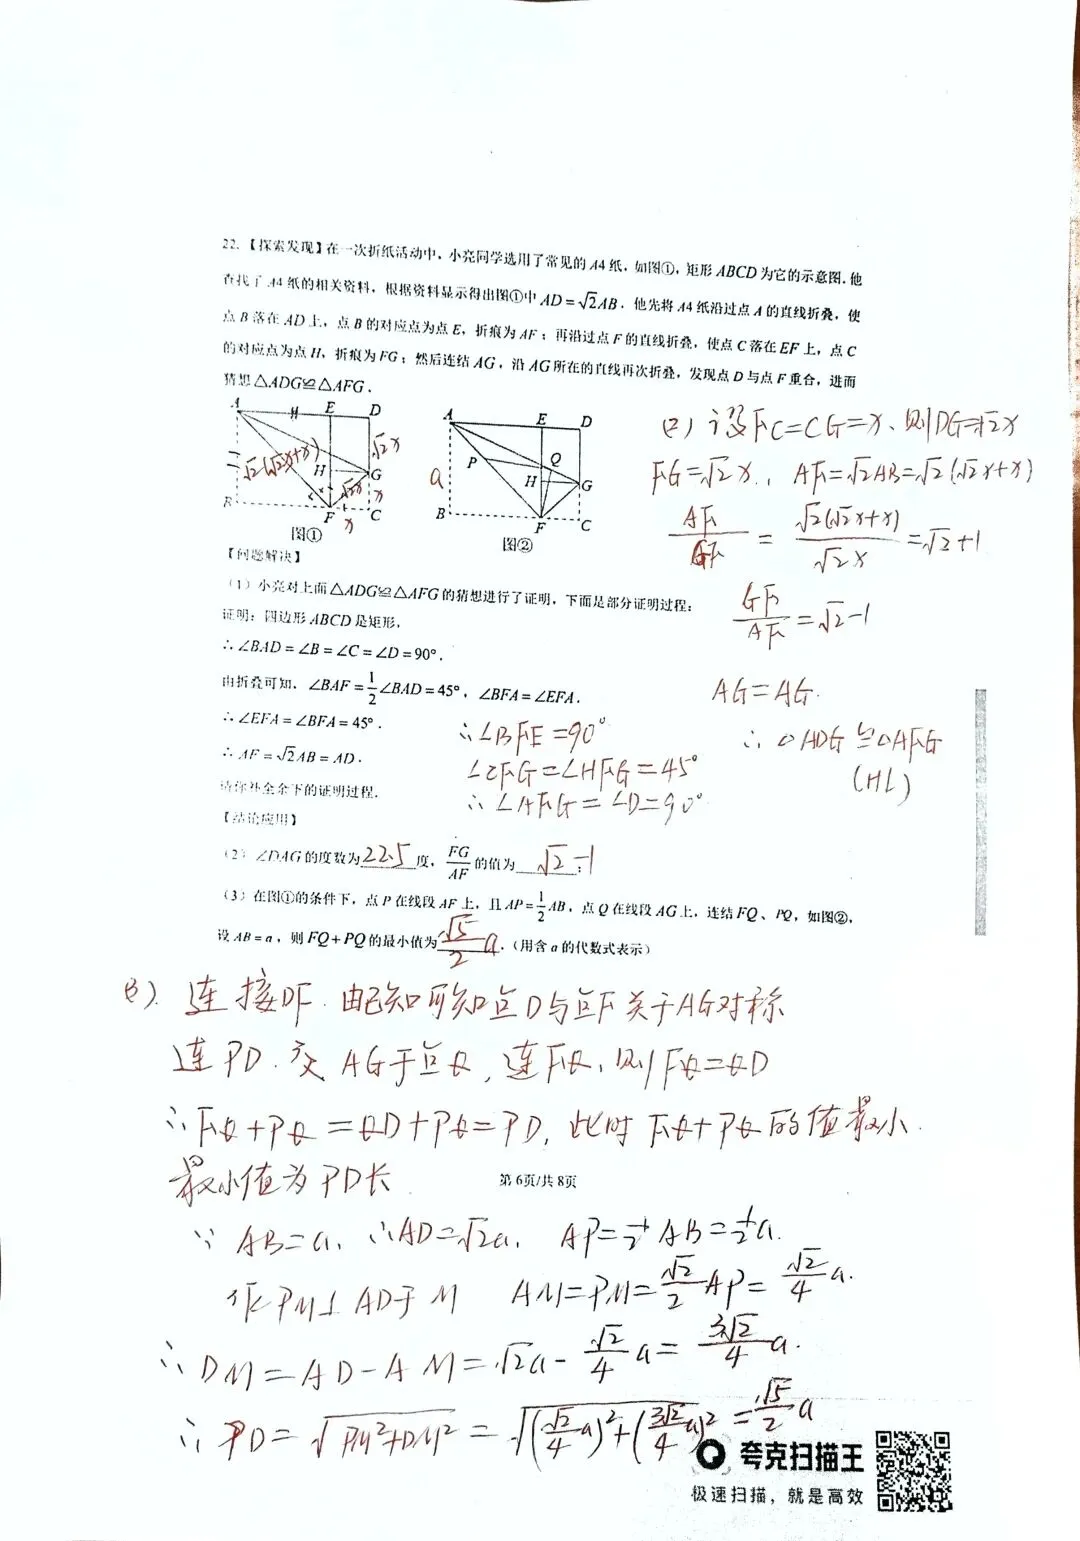 22.【探索发现】在一次折纸活动中，小亮同学选用了常见的A4纸，如图①，矩形ABCD为它的示意图.他
查找了A4纸的相关资料，根据资料显示得出图①中AD=√2AB．他先将A4纸沿过点A的直线折叠，使
点B落在AD上，点B的对应点为点E，折痕为AF；再沿过点F的直线折叠，使点C落在EF上，点C
的对应点为点H，折痕为FG；然后连结AG，沿AG所在的直线再次折叠，发现点D与点F重合，进而
猜想△ADG≌△AFG．
A E D
√2x
√2(√2x+x)
H G
√2x x
B F C
x
图①
A E D
P Q
a H G
B F C
图②
(2) 设FC=CG=x、则DG=√2x
FG=√2x., AF=√2AB=√2(√2x+x)
AF/GF = √2(√2x+x)/√2x =√2+1
GF/AF=√2-1
【问题解决】
（1）小亮对上面△ADG≌△AFG的猜想进行了证明，下面是部分证明过程：
证明：四边形ABCD是矩形，
∴∠BAD=∠B=∠C=∠D=90°．
由折叠可知，∠BAF=1/2∠BAD=45°，∠BFA=∠EFA．
∴∠EFA=∠BFA=45°．
∴AF=√2AB=AD．
请你补全余下的证明过程．
∴∠BFE=90°
∠CFG=∠HFG=45°
∴∠AFG=∠D=90°
AG=AG.
∴△ADG≌△AFG
(HL)
【结论应用】
（2）∠DAG的度数为22.5度，FG/AF的值为√2-1；
（3）在图①的条件下，点P在线段AF上，且AP=1/2AB，点Q在线段AG上，连结FQ、PQ，如图②，
设AB=a，则FQ+PQ的最小值为√5/2a．（用含a的代数式表示）
(3). 连接DF.由已知可知点D与点F关于AG对称
连PD.交AG于点Q,连FQ,则FQ=QD
∴FQ+PQ=QD+PQ=PD,此时FQ+PQ的值最小.
最小值为PD长
第6页/共8页
∵AB=a,∴AD=√2a, AP=1/2AB=1/2a.
作PM⊥AD于M AM=PM=√2/2AP=√2/4a.
∴DM=AD-AM=√2a-√2/4a=3√2/4a.
∴PD=√PM²+DM²=√(√2/4a)²+(3√2/4a)²=√5/2a
夸克扫描王
极速扫描，就是高效